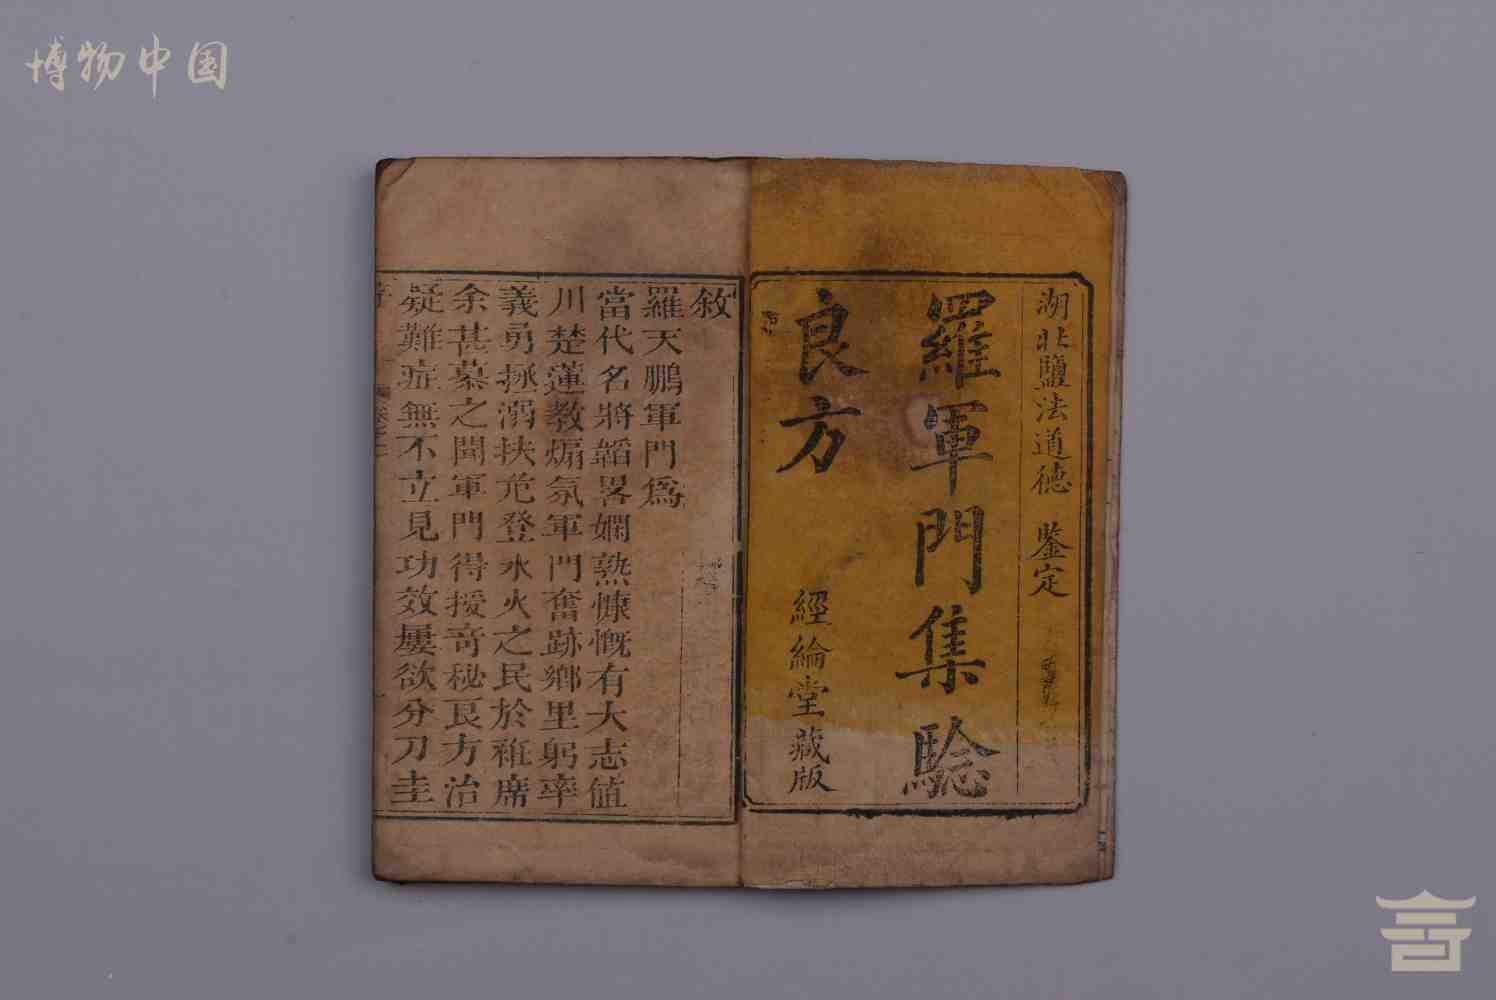 博物中国
湖北鹽法道德 鑒定
羅軍門集驗
良方
經綸堂藏版
敘
羅天鵬軍門爲
當代名將韜畧嫻熟慷慨有大志値
川楚蓮教煽氛軍門奮跡鄉里躬率
義勇拯溺扶危登水火之民於袵席
余甚慕之聞軍門得授竒秘良方治
疑難症無不立見功效屢欲分刀圭